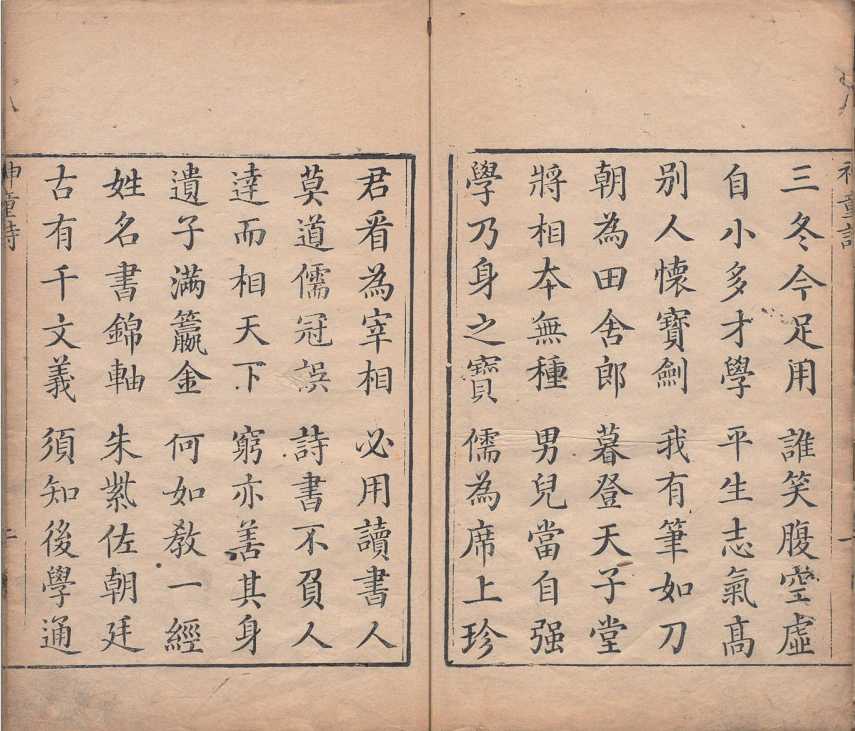 神童詩
三冬今足用 誰笑腹空虛
自小多才學 平生志氣高
别人懷寶劍 我有筆如刀
朝為田舍郎 暮登天子堂
將相本無種 男兒當自强
學乃身之寶 儒為席上珍
君看為宰相 必用讀書人
莫道儒冠誤 詩書不負人
達而相天下 窮亦善其身
遺子滿籯金 何如教一經
姓名書錦軸 朱紫佐朝廷
古有千文義 須知後學通
神童詩